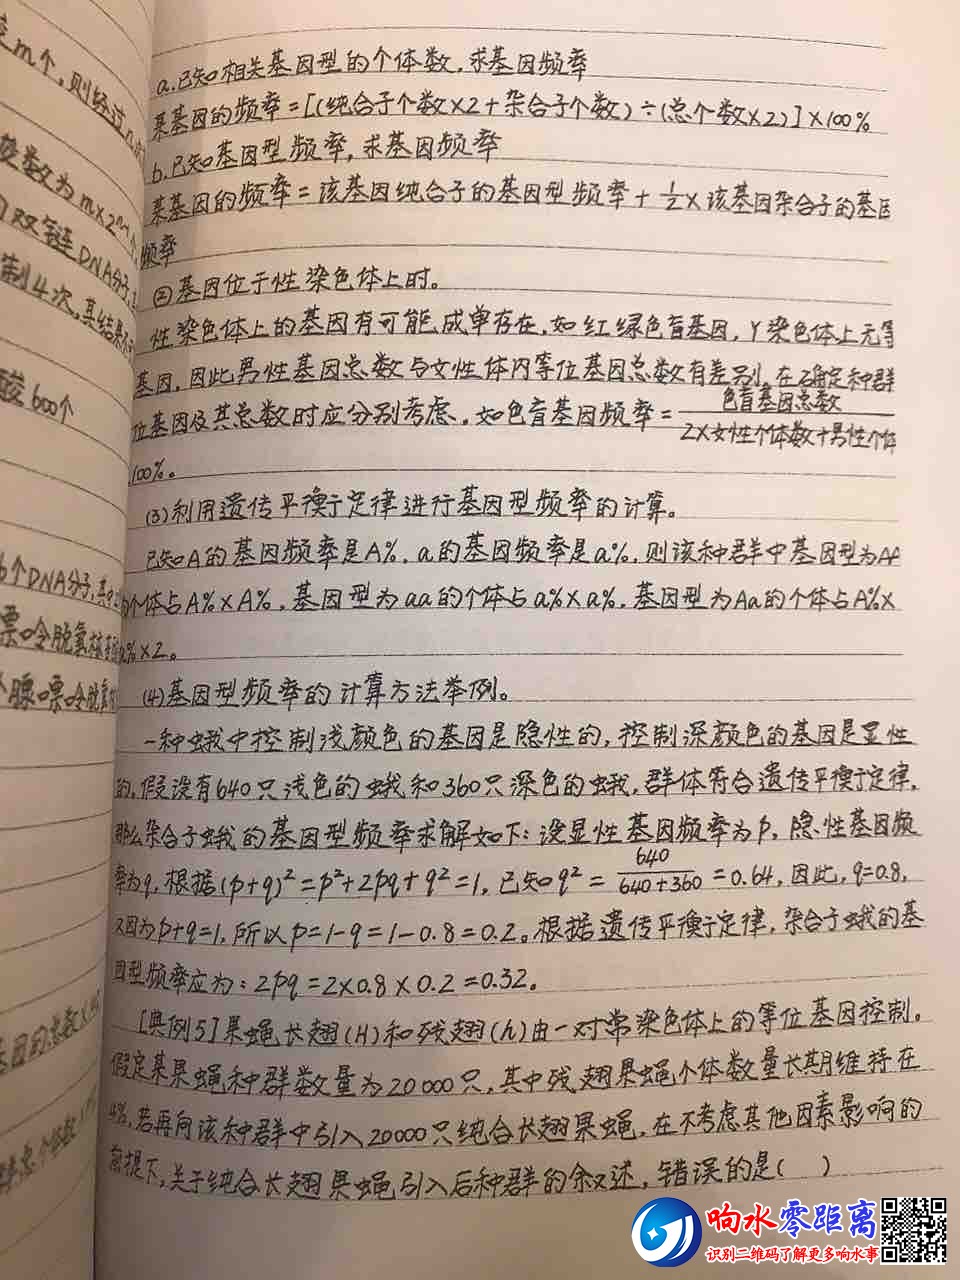 度m个,则经过
a.已知相关基因型的个体数,求基因频率
某基因的频率=[(纯合子个数×2+杂合子个数)÷(总个数×2)]×100%
b.已知基因型频率,求基因频率
数为m×2ⁿ⁻¹个
某基因的频率=该基因纯合子的基因型频率+1/2×该基因杂合子的基因
双链DNA分子
频率
②基因位于性染色体上时。
制4次,其结果
性染色体上的基因有可能成单存在,如红绿色盲基因,Y染色体上无等
基因,因此男性基因总数与女性体内等位基因总数有差别,在确定种群
酸600个
位基因及其总数时应分别考虑。如色盲基因频率=色盲基因总数/2×女性个体数+男性个体
100%。
(3)利用遗传平衡定律进行基因型频率的计算。
已知A的基因频率是A%,a的基因频率是a%,则该种群中基因型为AA
个DNA分子,其中
的个体占A%×A%,基因型为aa的个体占a%×a%,基因型为Aa的个体占A%×
嘌呤脱氧核苷
a%×2。
腺嘌呤脱氧
(4)基因型频率的计算方法举例。
一种蛾中控制浅颜色的基因是隐性的,控制深颜色的基因是显性
的,假设有640只浅色的蛾和360只深色的蛾,群体符合遗传平衡定律,
那么杂合子蛾的基因型频率求解如下:设显性基因频率为p,隐性基因频
率为q,根据(p+q)²=p²+2pq+q²=1,已知q²=640/640+360=0.64,因此,q=0.8,
又因为p+q=1,所以p=1-q=1-0.8=0.2。根据遗传平衡定律,杂合子蛾的基
因型频率应为:2pq=2×0.8×0.2=0.32。
[典例5]果蝇长翅(H)和残翅(h)由一对常染色体上的等位基因控制。
假定某果蝇种群数量为20000只,其中残翅果蝇个体数量长期维持在
4%,若再向该种群中引入20000只纯合长翅果蝇,在不考虑其他因素影响的
前提下,关于纯合长翅果蝇引入后种群的叙述,错误的是( )
响水零距离
识别二维码了解更多响水事